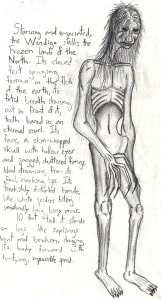 Starving and emaciated,
the Wendigo stalks the
Frozen lands of the
North. Its clawed
feet gouging
furrows in the flesh
of the earth, its
fetid breath steaming
out in front of it,
teeth bared in an
eternal snarl. Its
face, a skin-wrapped
skull with hollow eyes
and jagged, shattered fangs,
blood streaming from its
lips. Its
hands,
like white spiders
long bones
10 feet tall it stands
on legs like saplings,
bent and dragging
its body forward with
impossible speed.